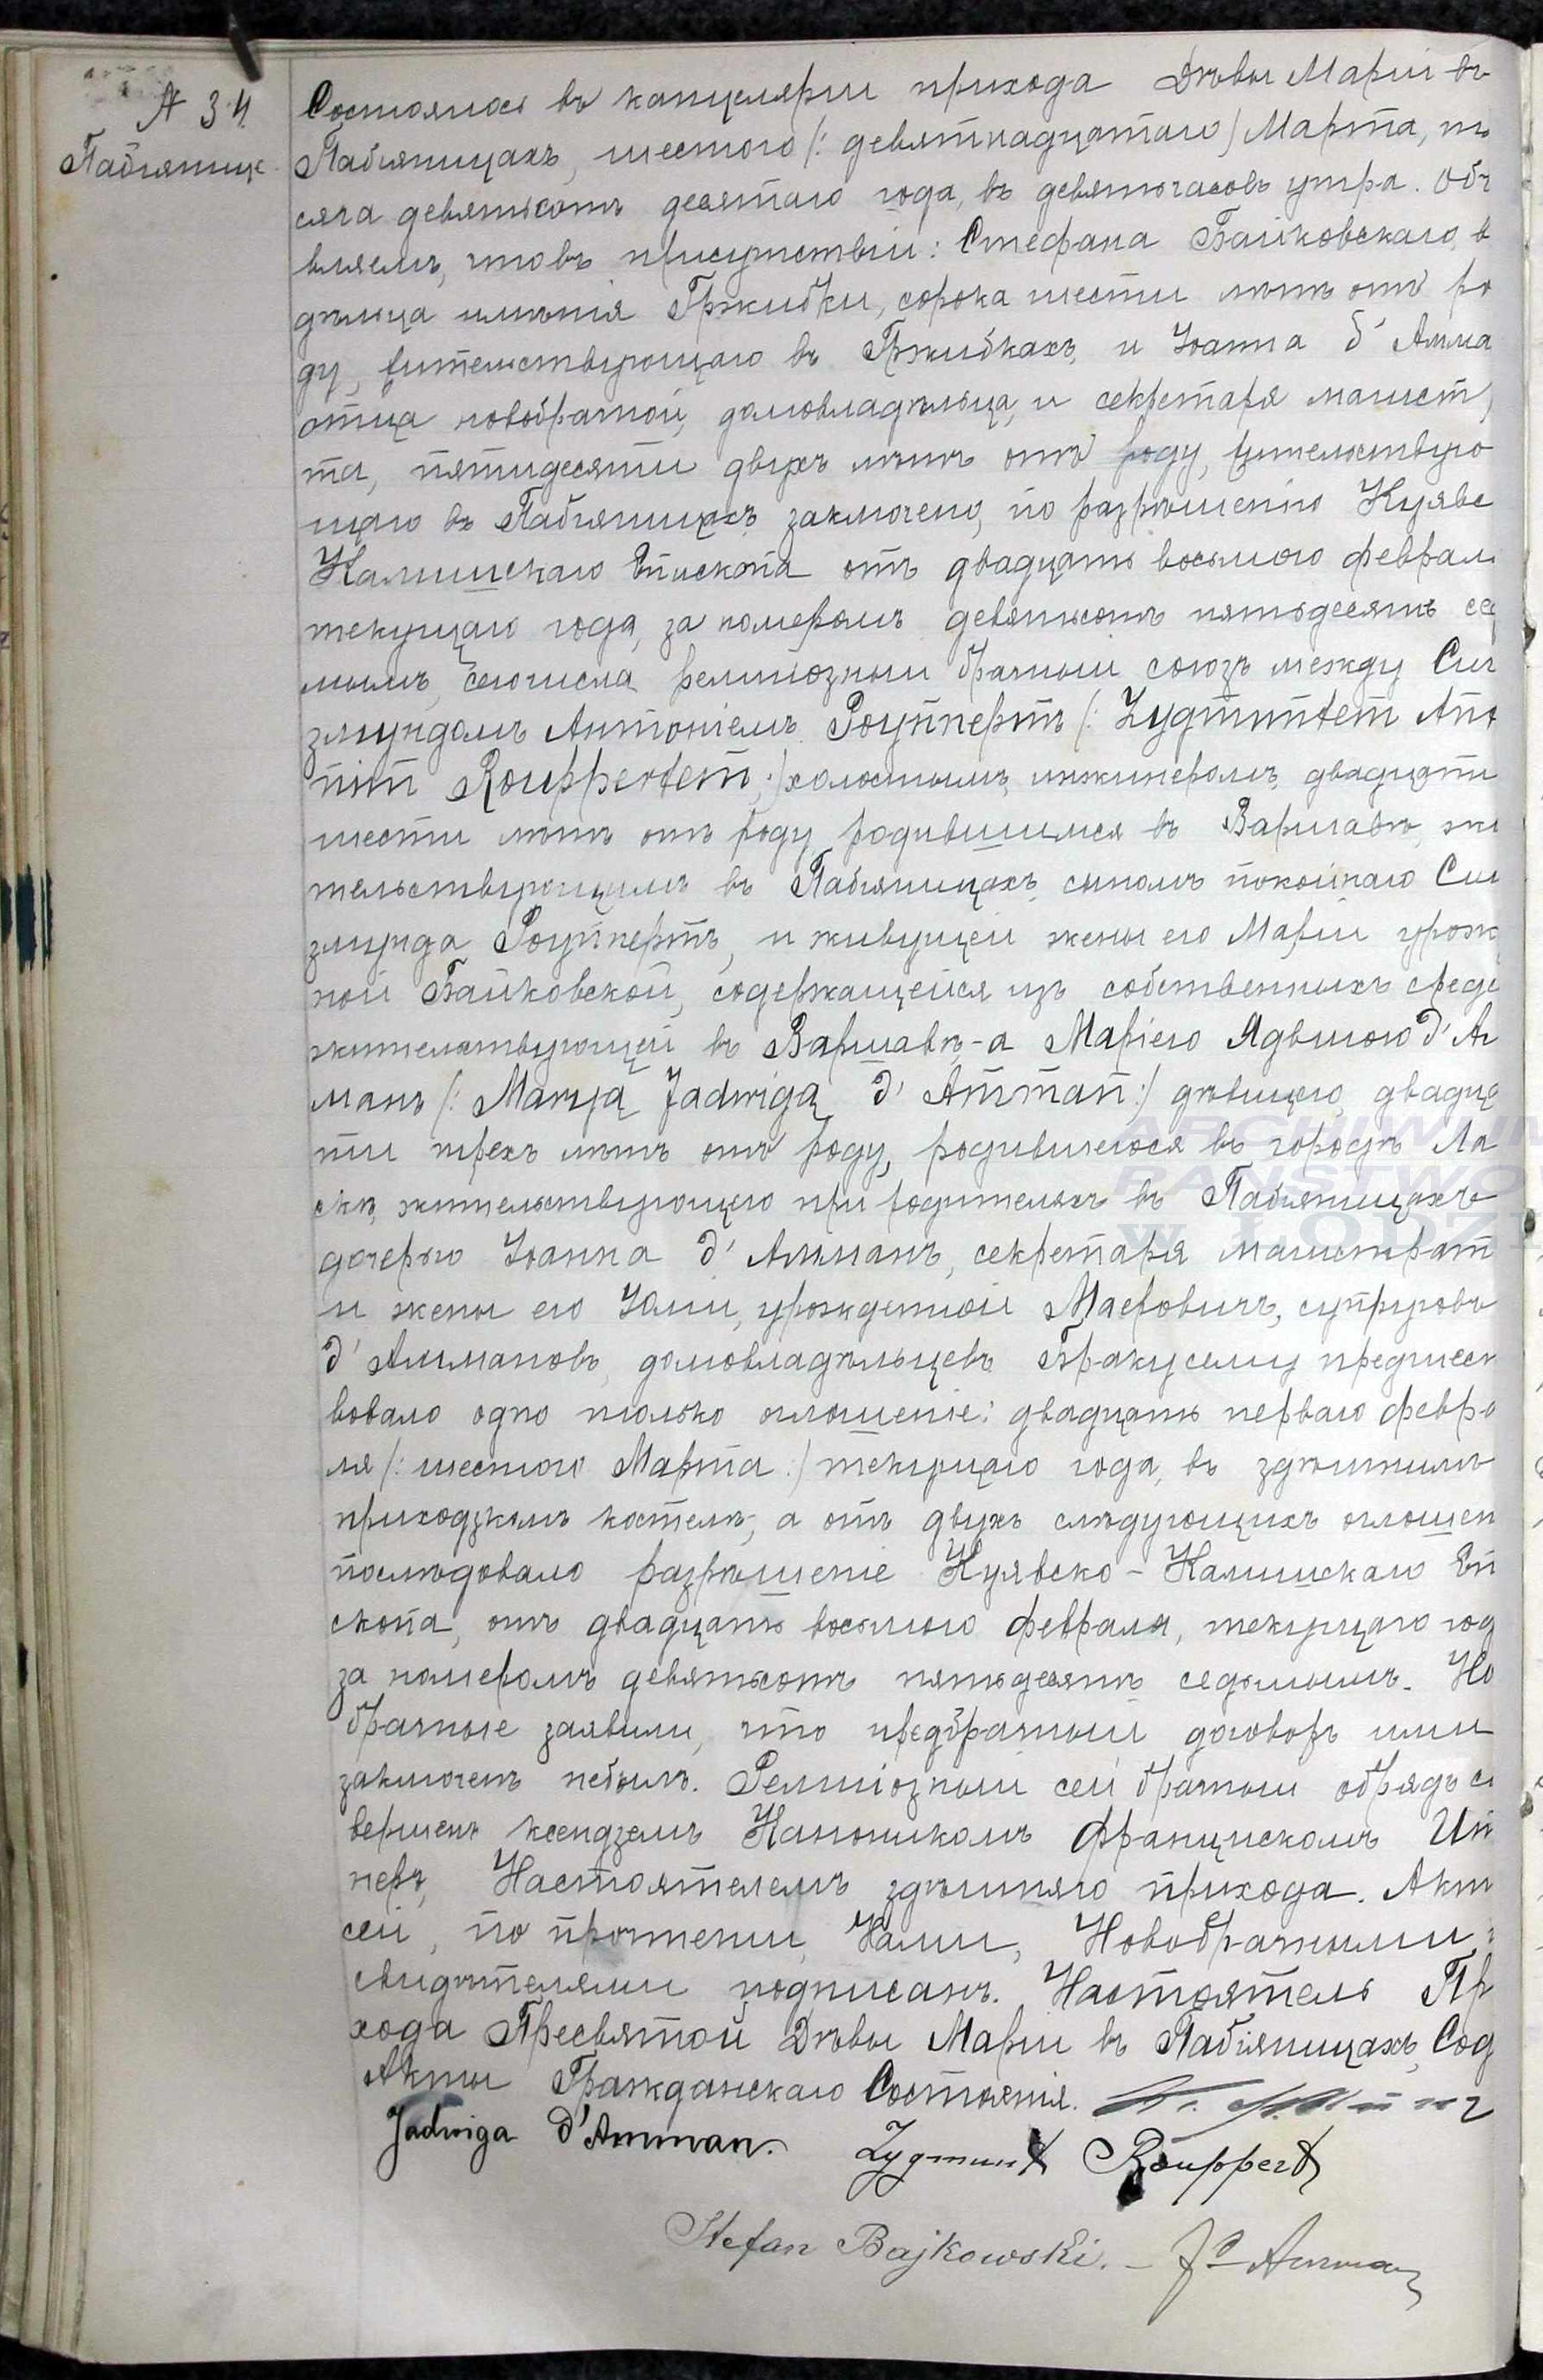 № 34.
Пабіяницe
Состоялось въ канцеляріи прихода Дѣвы Маріи въ
Пабіяницахъ, шестого /: девятнадцатаго / Марта, ты
сяча девятьсотъ десятаго года, въ девять часовъ утра. Объ
вляемъ, что въ присутствіи: Стефана Байковскаго, в
дѣльца имѣнія Гржибки, сорока шести лѣтъ отъ ро
ду, жительствующаго въ Гржибкахъ, и Іоанна д' Амма
отца новобрачной, домовладѣльца, и секретаря магист
та, пятидесяти двухъ лѣтъ отъ роду, жительствую
щаго въ Пабіяницахъ, заключено, по разрѣшенію Куявс
Калишскаго Епископа отъ двадцать восьмого феврал
текущаго года, за номеромъ девятьсотъ пятьдесятъ сед
мымъ, сего числа религіозный брачный союзъ между Сиг
змундомъ Антоніемъ Роуппертъ /: Zygmuntem Anto
nim Rouppertem :/ холостымъ, инженеромъ, двадцати
шести лѣтъ отъ роду родившимся въ Варшавѣ, жи
тельствующимъ въ Пабіяницахъ, сыномъ покойнаго Сиг
змунда Роуппертъ, и живущей жены его Маріи урож
ной Байковской, содержащейся изъ собственныхъ средс
жительствующей въ Варшавѣ,-а Маріею Ядвигою д' Ам
манъ /: Maryą Jadwigą d' Amman :/ дѣвицею, двадца
ти трехъ лѣтъ отъ роду, родившеюся въ городѣ Ла
скѣ, жительствующею при родителяхъ въ Пабіяницахъ
дочерью Іоанна д' Амманъ, секретаря магистрат
и жены его Юліи, урожденной Маеровичъ, супруговъ
д' Аммановъ, домовладѣльцевъ. Браку сему предшест
вовало одно только оглашеніе: двадцать перваго февра
ля /: шестого Марта :/ текущаго года, въ здѣшнимъ
приходзкомъ костелѣ, а отъ двухъ слѣдующихъ оглашен
послѣдовало разрѣшеніе Куявско - Калишскаго Епи
скопа, отъ двадцать восьмого февраля, текущаго год
за номеромъ девятьсотъ пятьдесятъ седьмымъ. Но
брачные заявили, что предбрачный договоръ ими
заключенъ небылъ. Религіозный сей брачный обрядъ со
вершенъ ксендземъ Каноникомъ Францискомъ
Настоятелемъ здѣшняго прихода. Актъ
сей, по прочтеніи, Нами, Новобрачными,
свидѣтелями подписанъ. Настоятель При
хода Пресвятой Дѣвы Маріи въ Пабіяницахъ, Сод
Акты Гражданскаго Состоянія.
Jadwiga d'Amman. Zygmunt Rouppert
Stefan Bajkowski. - J d'Amman
ARCHIWUM
PAŃSTWOW
W ŁODZI